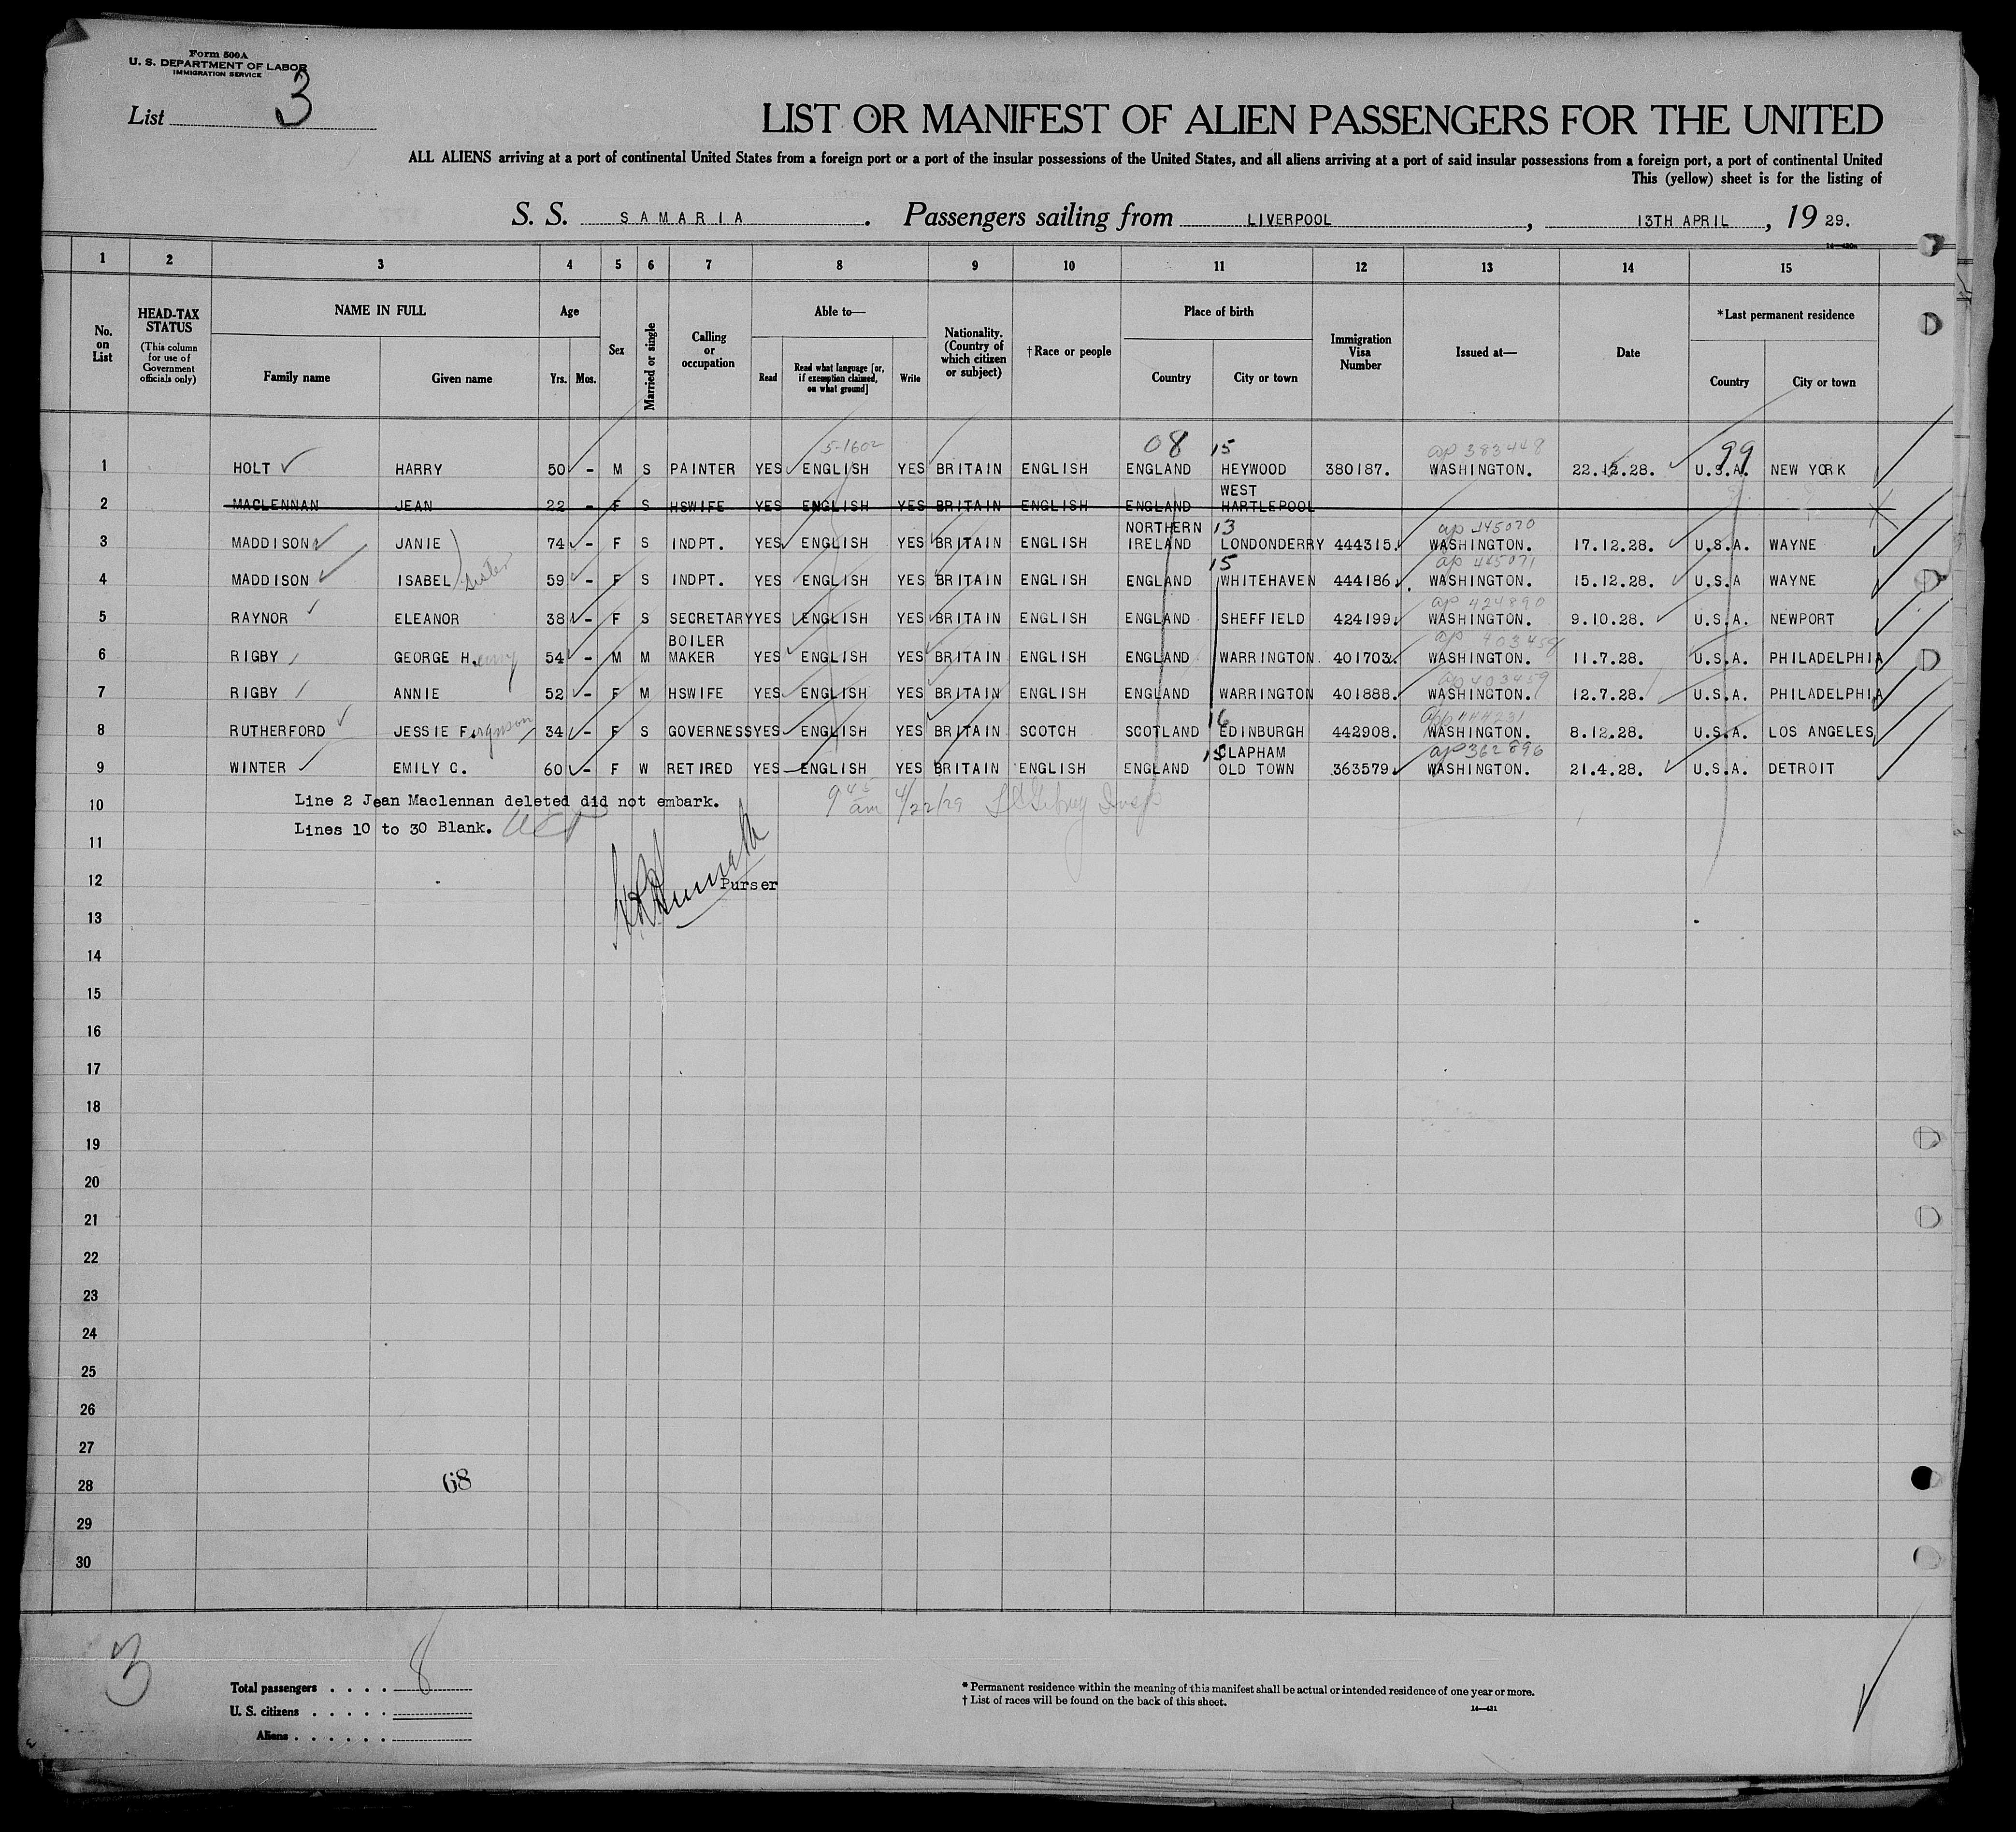 Form 500A
U. S. DEPARTMENT OF LABOR
IMMIGRATION SERVICE
List 3
LIST OR MANIFEST OF ALIEN PASSENGERS FOR THE UNITED
ALL ALIENS arriving at a port of continental United States from a foreign port or a port of the insular possessions of the United States, and all aliens arriving at a port of said insular possessions from a foreign port, a port of continental United
This (yellow) sheet is for the listing of
S. S. SAMARIA. Passengers sailing from LIVERPOOL, 13TH APRIL, 19 29.
14—430a
1 2 3 4 5 6 7 8 9 10 11 12 13 14 15
No. on List
HEAD-TAX STATUS (This column for use of Government officials only)
NAME IN FULL
Family name
Given name
Age
Yrs. Mos.
Sex
Married or single
Calling or occupation
Able to—
Read
Read what language [or, if exemption claimed, on what ground]
Write
Nationality. (Country of which citizen or subject)
†Race or people
Place of birth
Country
City or town
Immigration Visa Number
Issued at—
Date
*Last permanent residence
Country
City or town
5-1602 08 15 ap 383448 99
1 HOLT HARRY 50 - M S PAINTER YES ENGLISH YES BRITAIN ENGLISH ENGLAND HEYWOOD 380187. WASHINGTON. 22.12.28. U.S.A. NEW YORK
WEST
2 MACLENNAN JEAN 22 - F S HSWIFE YES ENGLISH YES BRITAIN ENGLISH ENGLAND HARTLEPOOL
NORTHERN 13 ap 445070
3 MADDISON JANIE 74 - F S INDPT. YES ENGLISH YES BRITAIN ENGLISH IRELAND LONDONDERRY 444315. WASHINGTON. 17.12.28. U.S.A. WAYNE
15 ap 445071
4 MADDISON ISABEL sister 59 - F S INDPT. YES ENGLISH YES BRITAIN ENGLISH ENGLAND WHITEHAVEN 444186. WASHINGTON. 15.12.28. U.S.A WAYNE
ap 424890
5 RAYNOR ELEANOR 38 - F S SECRETARY YES ENGLISH YES BRITAIN ENGLISH ENGLAND SHEFFIELD 424199. WASHINGTON. 9.10.28. U.S.A. NEWPORT
BOILER ap 403458
6 RIGBY GEORGE H.enry 54 - M M MAKER YES ENGLISH YES BRITAIN ENGLISH ENGLAND WARRINGTON. 401703. WASHINGTON. 11.7.28. U.S.A. PHILADELPHIA
ap 403459
7 RIGBY ANNIE 52 - F M HSWIFE YES ENGLISH YES BRITAIN ENGLISH ENGLAND WARRINGTON 401888. WASHINGTON. 12.7.28. U.S.A. PHILADELPHIA
16 app 444231
8 RUTHERFORD JESSIE F.erguson 34 - F S GOVERNESS YES ENGLISH YES BRITAIN SCOTCH SCOTLAND EDINBURGH 442908. WASHINGTON. 8.12.28. U.S.A. LOS ANGELES
15 CLAPHAM ap 362896
9 WINTER EMILY C. 60 - F W RETIRED YES ENGLISH YES BRITAIN ENGLISH ENGLAND OLD TOWN 363579 WASHINGTON. 21.4.28. U.S.A. DETROIT
10 Line 2 Jean Maclennan deleted did not embark. 9 45 am 4/22/29 Insp
Lines 10 to 30 Blank.
11
12 Purser
13
14
15
16
17
18
19
20
21
22
23
24
25
26
27
28 68
29
30
3
Total passengers . . . . 8
U. S. citizens . . . . .
Aliens . . . . . .
* Permanent residence within the meaning of this manifest shall be actual or intended residence of one year or more.
† List of races will be found on the back of this sheet.
14—431